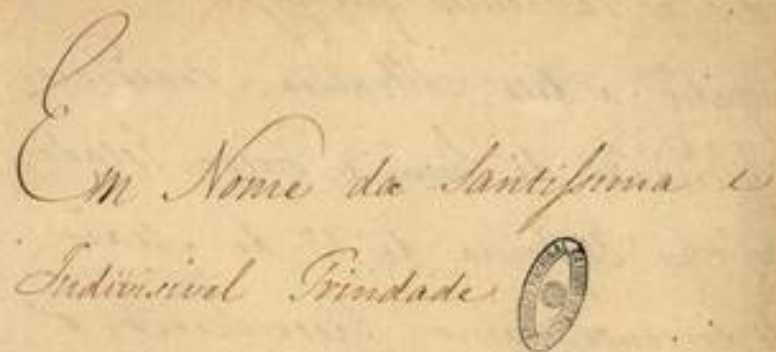 Em Nome da Santissima e
Indivisivel Trindade